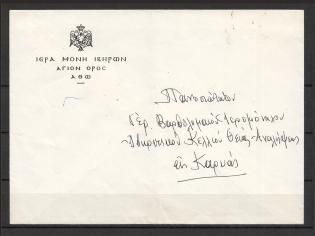 ΙΕΡΑ ΜΟΝΗ ΙΒΗΡΩΝ
ΑΓΙΟΝ ΟΡΟΣ
ΑΘΩ
Πανοσιώτατον
Γέρ. Βαρθολομαῖον Ἱερομόναχον
Ἰβηριτικόν Κελλίον Θείας Ἀναλήψεως
εἰς Καρυάς